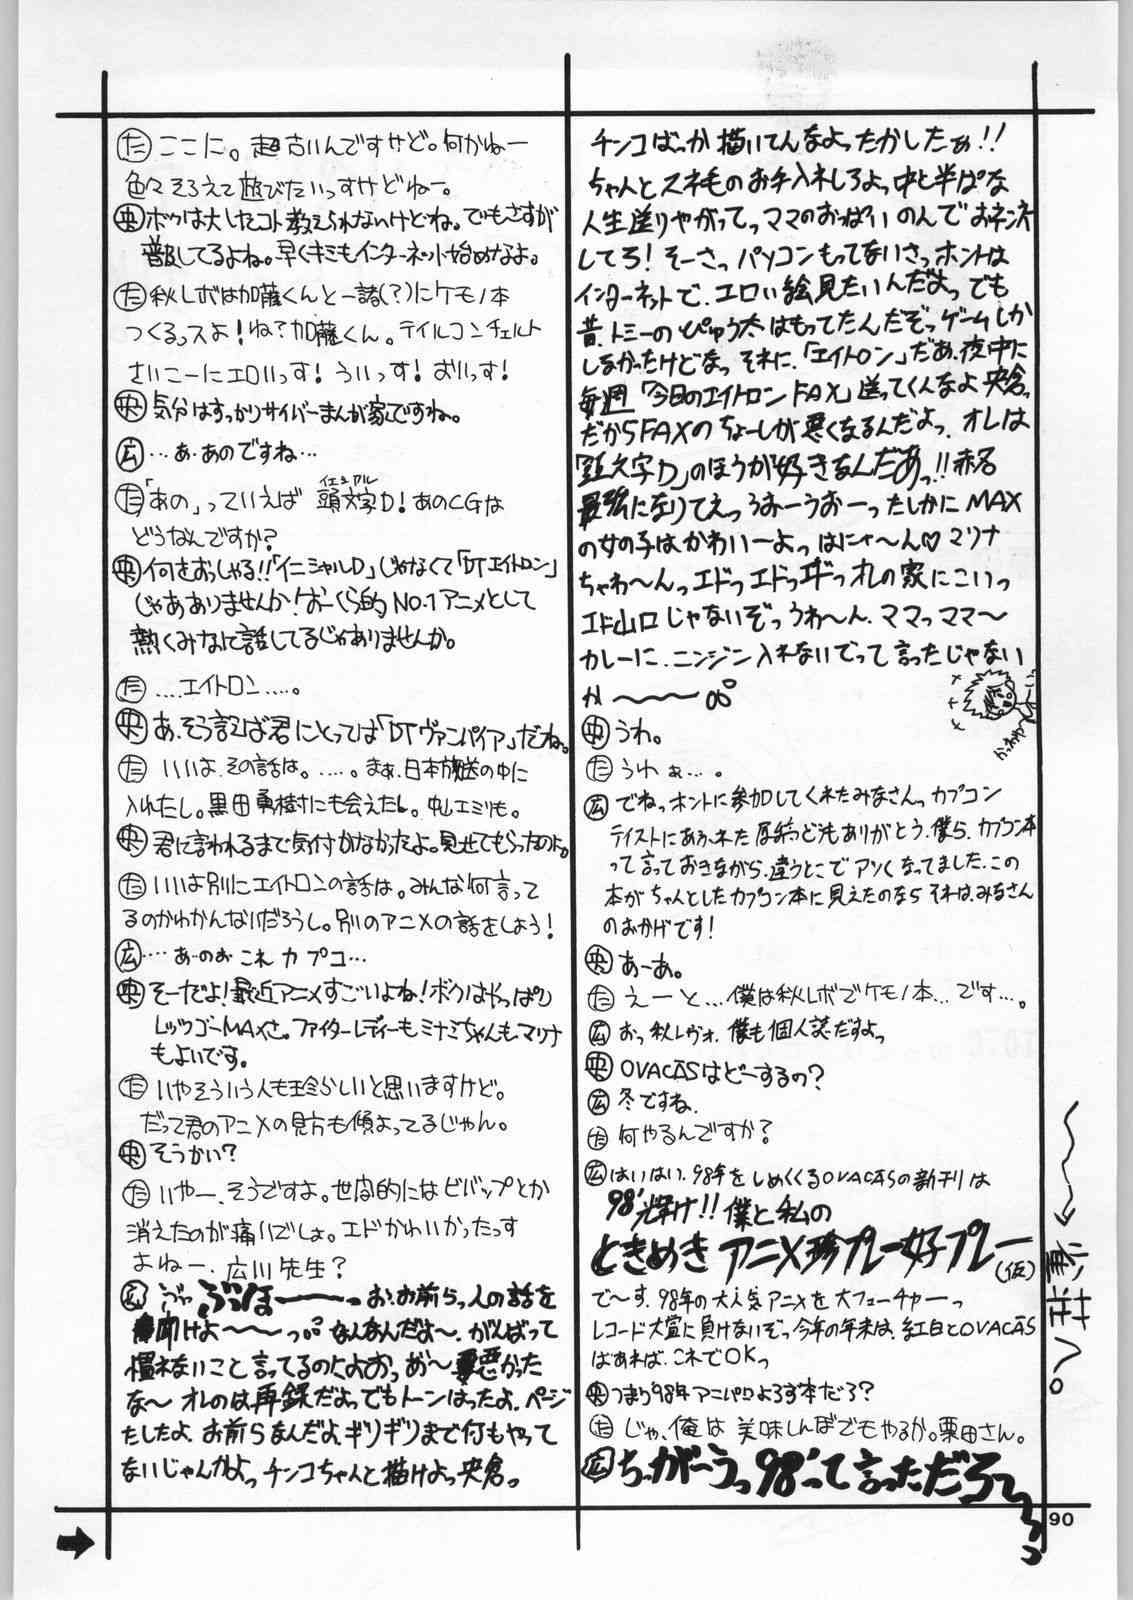 た ここに。超古いんですけど。何かねー
色々そろえて遊びたいっすけどねー。
央 ボクは大したコト教えられないけどね。でもさすが
普及してるよね。早くキミもインターネット始めなよ。
た 秋レボは加藤くんと一諸(?)にケモノ本
つくるっスよ!ね?加藤くん。テイルコンチェルト
さいこーにエロいっす!ういっす!おいっす!
央 気分はすっかりサイバーまんが家ですね。
広 …あ、あのですね…
た 「あの」っていえば 頭文字D!あのCGな
イニシャル
どうなんですか?
央 何をおっしゃる!!「イニシャルD」じゃなくて「DTエイトロン」
じゃありませんか!おーくら的No.1アニメとして
熱くみなに話してるじゃありませんか。
た ‥‥エイトロン‥‥。
央 あ、そう言えば君にとっては「DTヴァンパイア」だね。
た いいよ、その話は。‥‥。まぁ、日本放送の中に
入れたし。黒田勇樹にも会えたし。中山エミリも。
央 君に言われるまで気付かなかったよ。見せてもらったのよ。
た いいよ別にエイトロンの話は。みんな何言って
るのかわかんないだろうし。別のアニメの話をしよう!
広 ‥‥あ、あのお これ カプコ…
央 そーだよ!最近アニメすごいよね!ボクはやっぱり
レッツゴーMAXさ。ファイターレディーもミナミちゃんも、マリナ
もよいです。
た いやそういう人も珍らしいと思いますけど。
だって君のアニメの見方も傾よってるじゃん。
央 そうかい?
た いやー、そうですよ。世間的にはビバップとか
消えたのが痛いでしょ。エドかわいかったっす
よねー、広川先生?
広 ぶっほーーーっ お、お前らっ人の話を
聞けよ〜〜〜っ なんなんだよ〜、がんばって
慣れないこと言ってるのによおおっ め〜 悪かった
な〜 オレのは再録だよってでもトーンはったよ、ページ
たしたよ、お前らなんだよ、ギリギリまで何もやって
ないじゃんかよっ チンコちゃんと描けよっ央倉っ
チンコばっか描いてんなよったかしたぁ!!
ちゃんとスネ毛のお手入れしろよっ中と半ぱな
人生送りやがってっママのおっぱいのんでおネンネ
してろ!そーさっパソコンもってないさっホントは
インターネットで、エロい絵見たいんだよっでも
昔、トミーのぴゅう太はもってたんだぞっゲームしか
しなかったけどなっ それに、「エイトロン」だあ、夜中に
毎週「今日のエイトロンFAX」送ってくんなよ央倉っ
だからFAXのちょーしが悪くなるんだよっ、オレは
「頭文字D」のほうが好きなんだあっ!!赤名
最強になりてえっ うおーうおーっ たしかにMAX
の女の子はかわいーよっ はにゃ〜ん♡マリナ
ちゃわ〜んっエドっエドっエドっオレの家にこいっ
エド山口じゃないぞっうわ〜ん、ママっママ〜
カレーに、ニンジン入れないでって言ったじゃない
か〜〜〜〜
央 うわ。
た うわぁ…。
広 でねっホントに参加してくれたみなさんっカプコン
テイストにあふれた原稿っどうもありがとう、僕ら、カプコン本
って言っておきながら、違うとこでアツくなってました、この
本がちゃんとしたカプコン本に見えたのならそれは、みなさん
のおかげです!
央 あーあ。
た えーと…僕は秋レボでケモノ本…です…。
広 おっ秋レヴォ、僕も個人誌だすよっ
央 OVACASはどーするの?
広 冬ですね、
た 何やるんですか?
広 はいはい、98年をしめくくるOVACASの新刊は
98'輝け!!僕と私の
ときめきアニメ珍プレー好プレー
(仮)
で〜す、98年の大人気アニメを大フューチャーっ
レコード大賞に負けないぞっ今年の年末は、紅白とOVACAS
ばあれば、これでOKっ
央 つまり98年アニパロよろず本だろ?
た じゃ、俺は 美味しんぼでもやるか。栗田さん。
広 ちっがーうっ98'って言っただろーっっっ
90